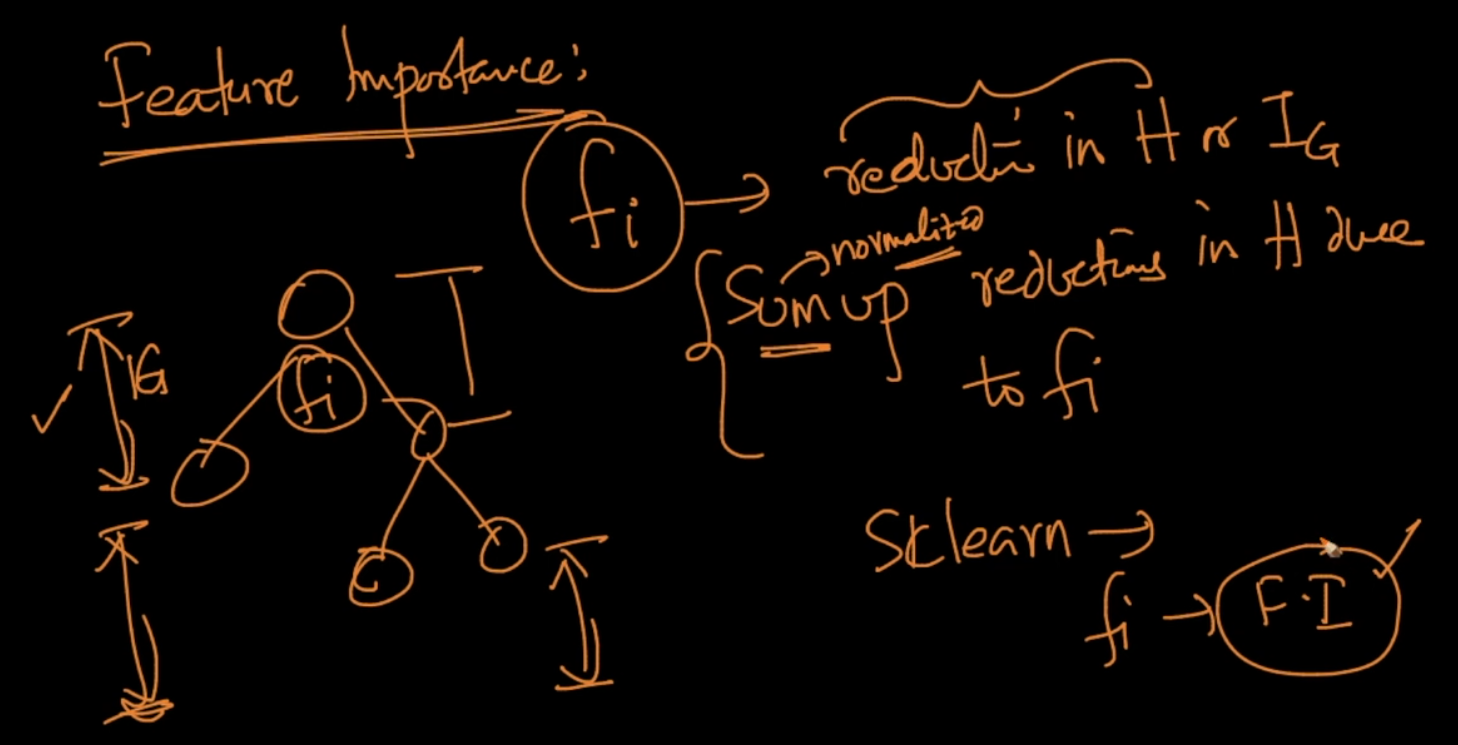 Feature Importance:
fi → reduction in H or IG
Sum up → normalized reductions in H due
to fi
IG
fi
Sklearn →
fi → F.I